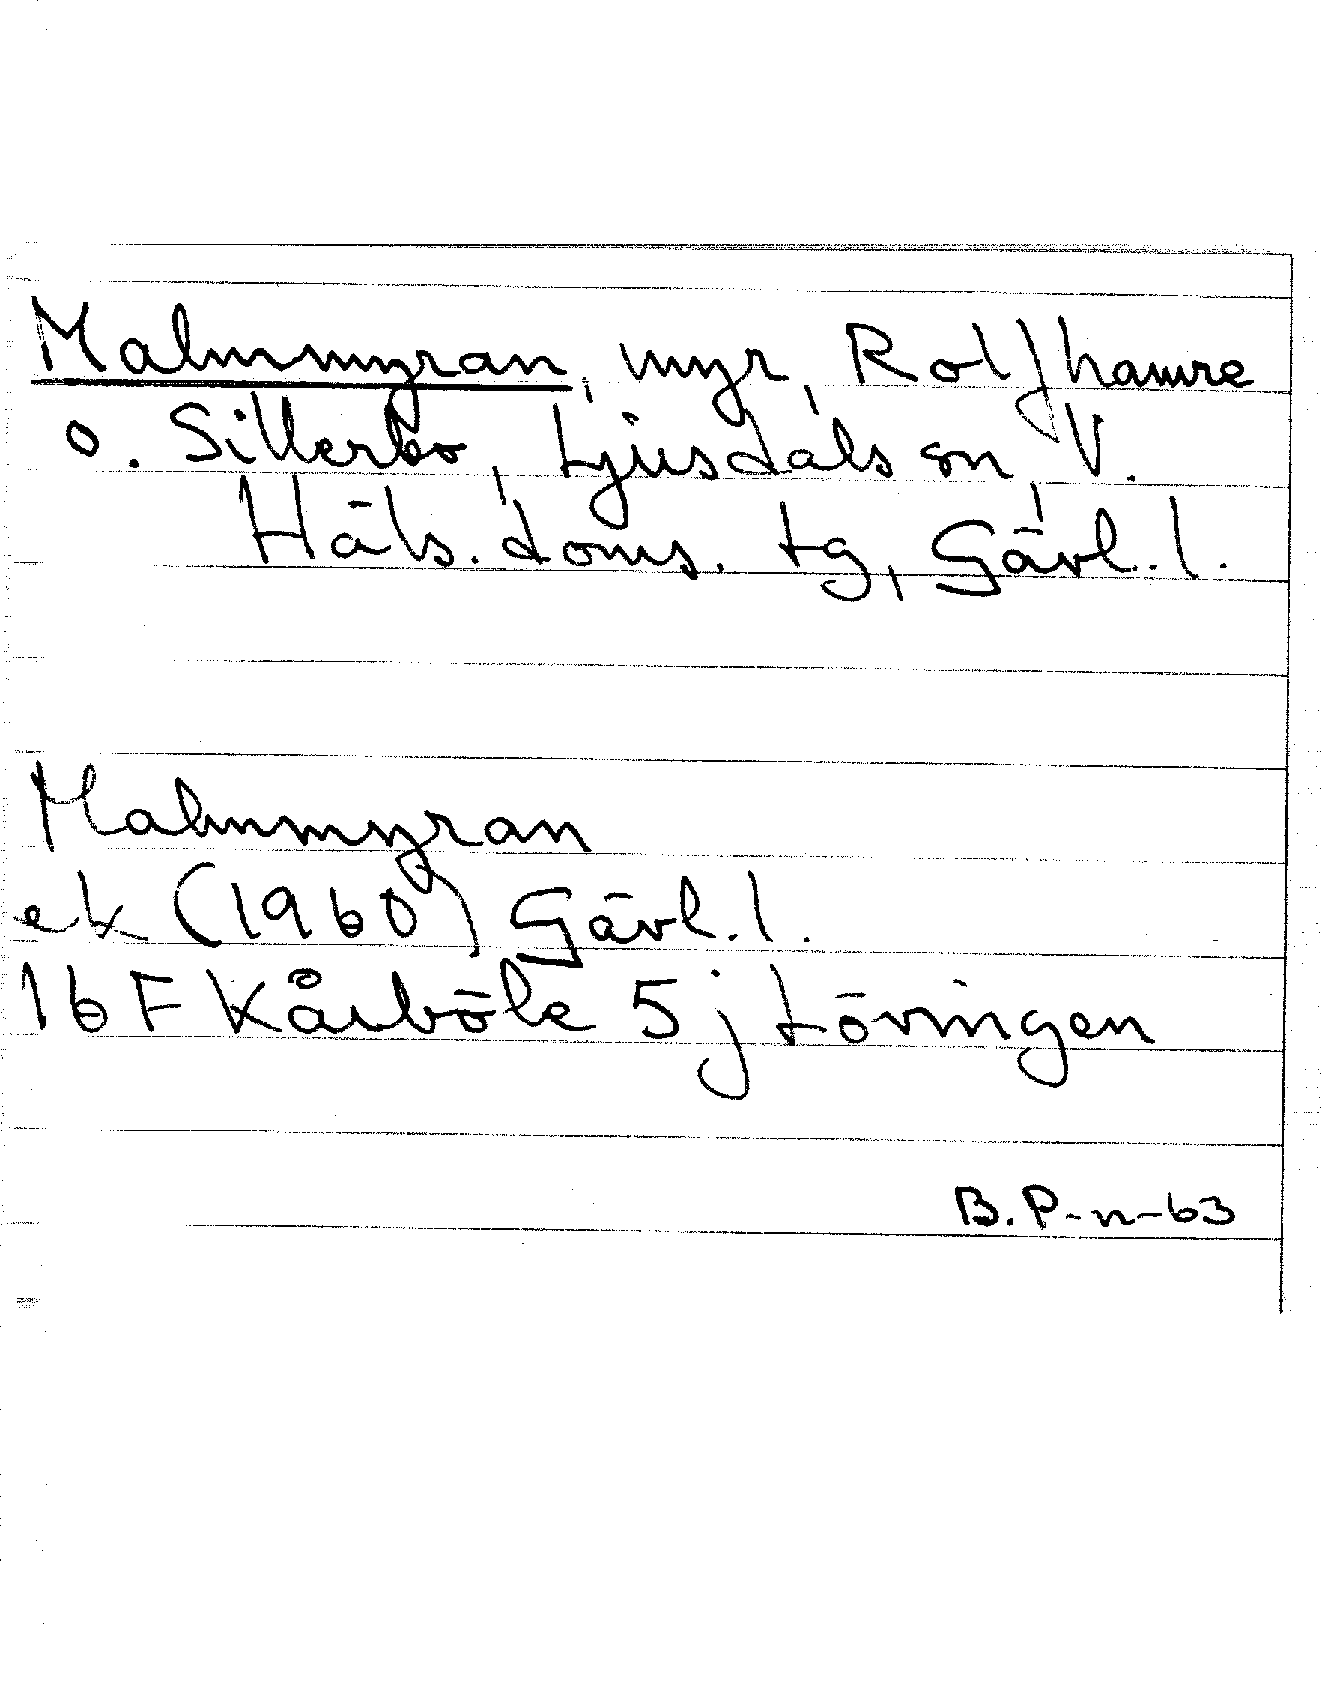 Malmmyran, myr, Rolfhamre
o. Sillerbo, Ljusdals sn, V.
Häls. doms. tg, Gävl. l.
Malmmyran
ek (1960) Gävl. l.
16 F Kårböle 5 j Lövingen
B.P-n-63